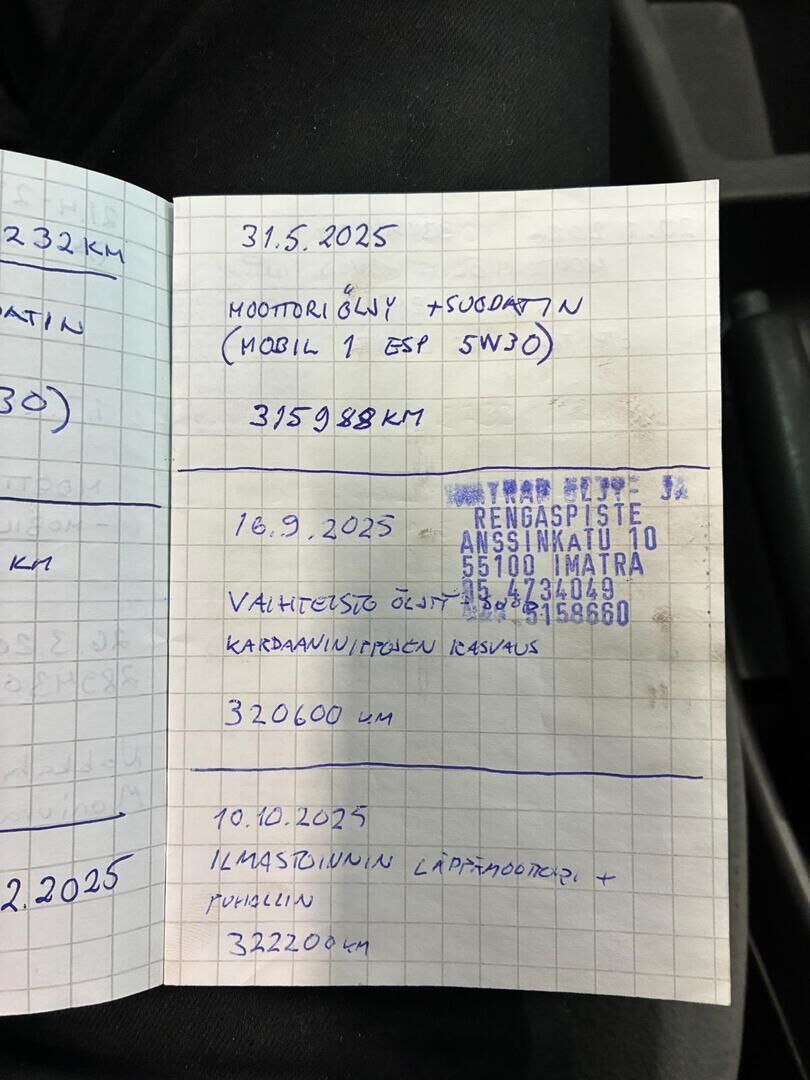 232 KM
ATIN
30)
KM
2.2025
31.5.2025
MOOTTORI ÖLJY +SUODATIN
(MOBIL 1 ESP 5W30)
315988 KM
16.9.2025
RENGASPISTE
ANSSINKATU 10
55100 IMATRA
05 4734049
5158660
VAIHTEISTO ÖLJYT
KARDAANINIPPOJEN RASVAUS
320600 KM
10.10.2025
ILMASTOINNIN LÄPPÄMOOTTORI +
PUHALLIN
322200 KM